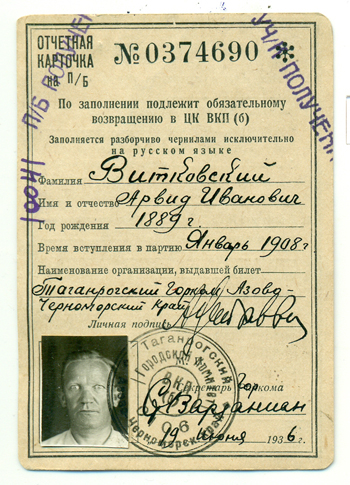 ОТЧЕТНАЯ
КАРТОЧКА
на П/Б
№ 0374690 *
По заполнении подлежит обязательному
возвращению в ЦК ВКП (б)
Заполняется разборчиво чернилами исключительно
на русском языке
Фамилия Витковский
Имя и отчество Арвид Иванович
Год рождения 1889 г
Время вступления в партию Январь 1908 г
Наименование организации, выдавшей билет
Таганрогский Горком Азово-
Черноморский Край
Личная подпись
Таганрогский
Городской
Черноморск
Секретарь Горкома
Варданиан
19 июня 1936 г.
П/Б
УЧ/К ПОЛУЧЕН